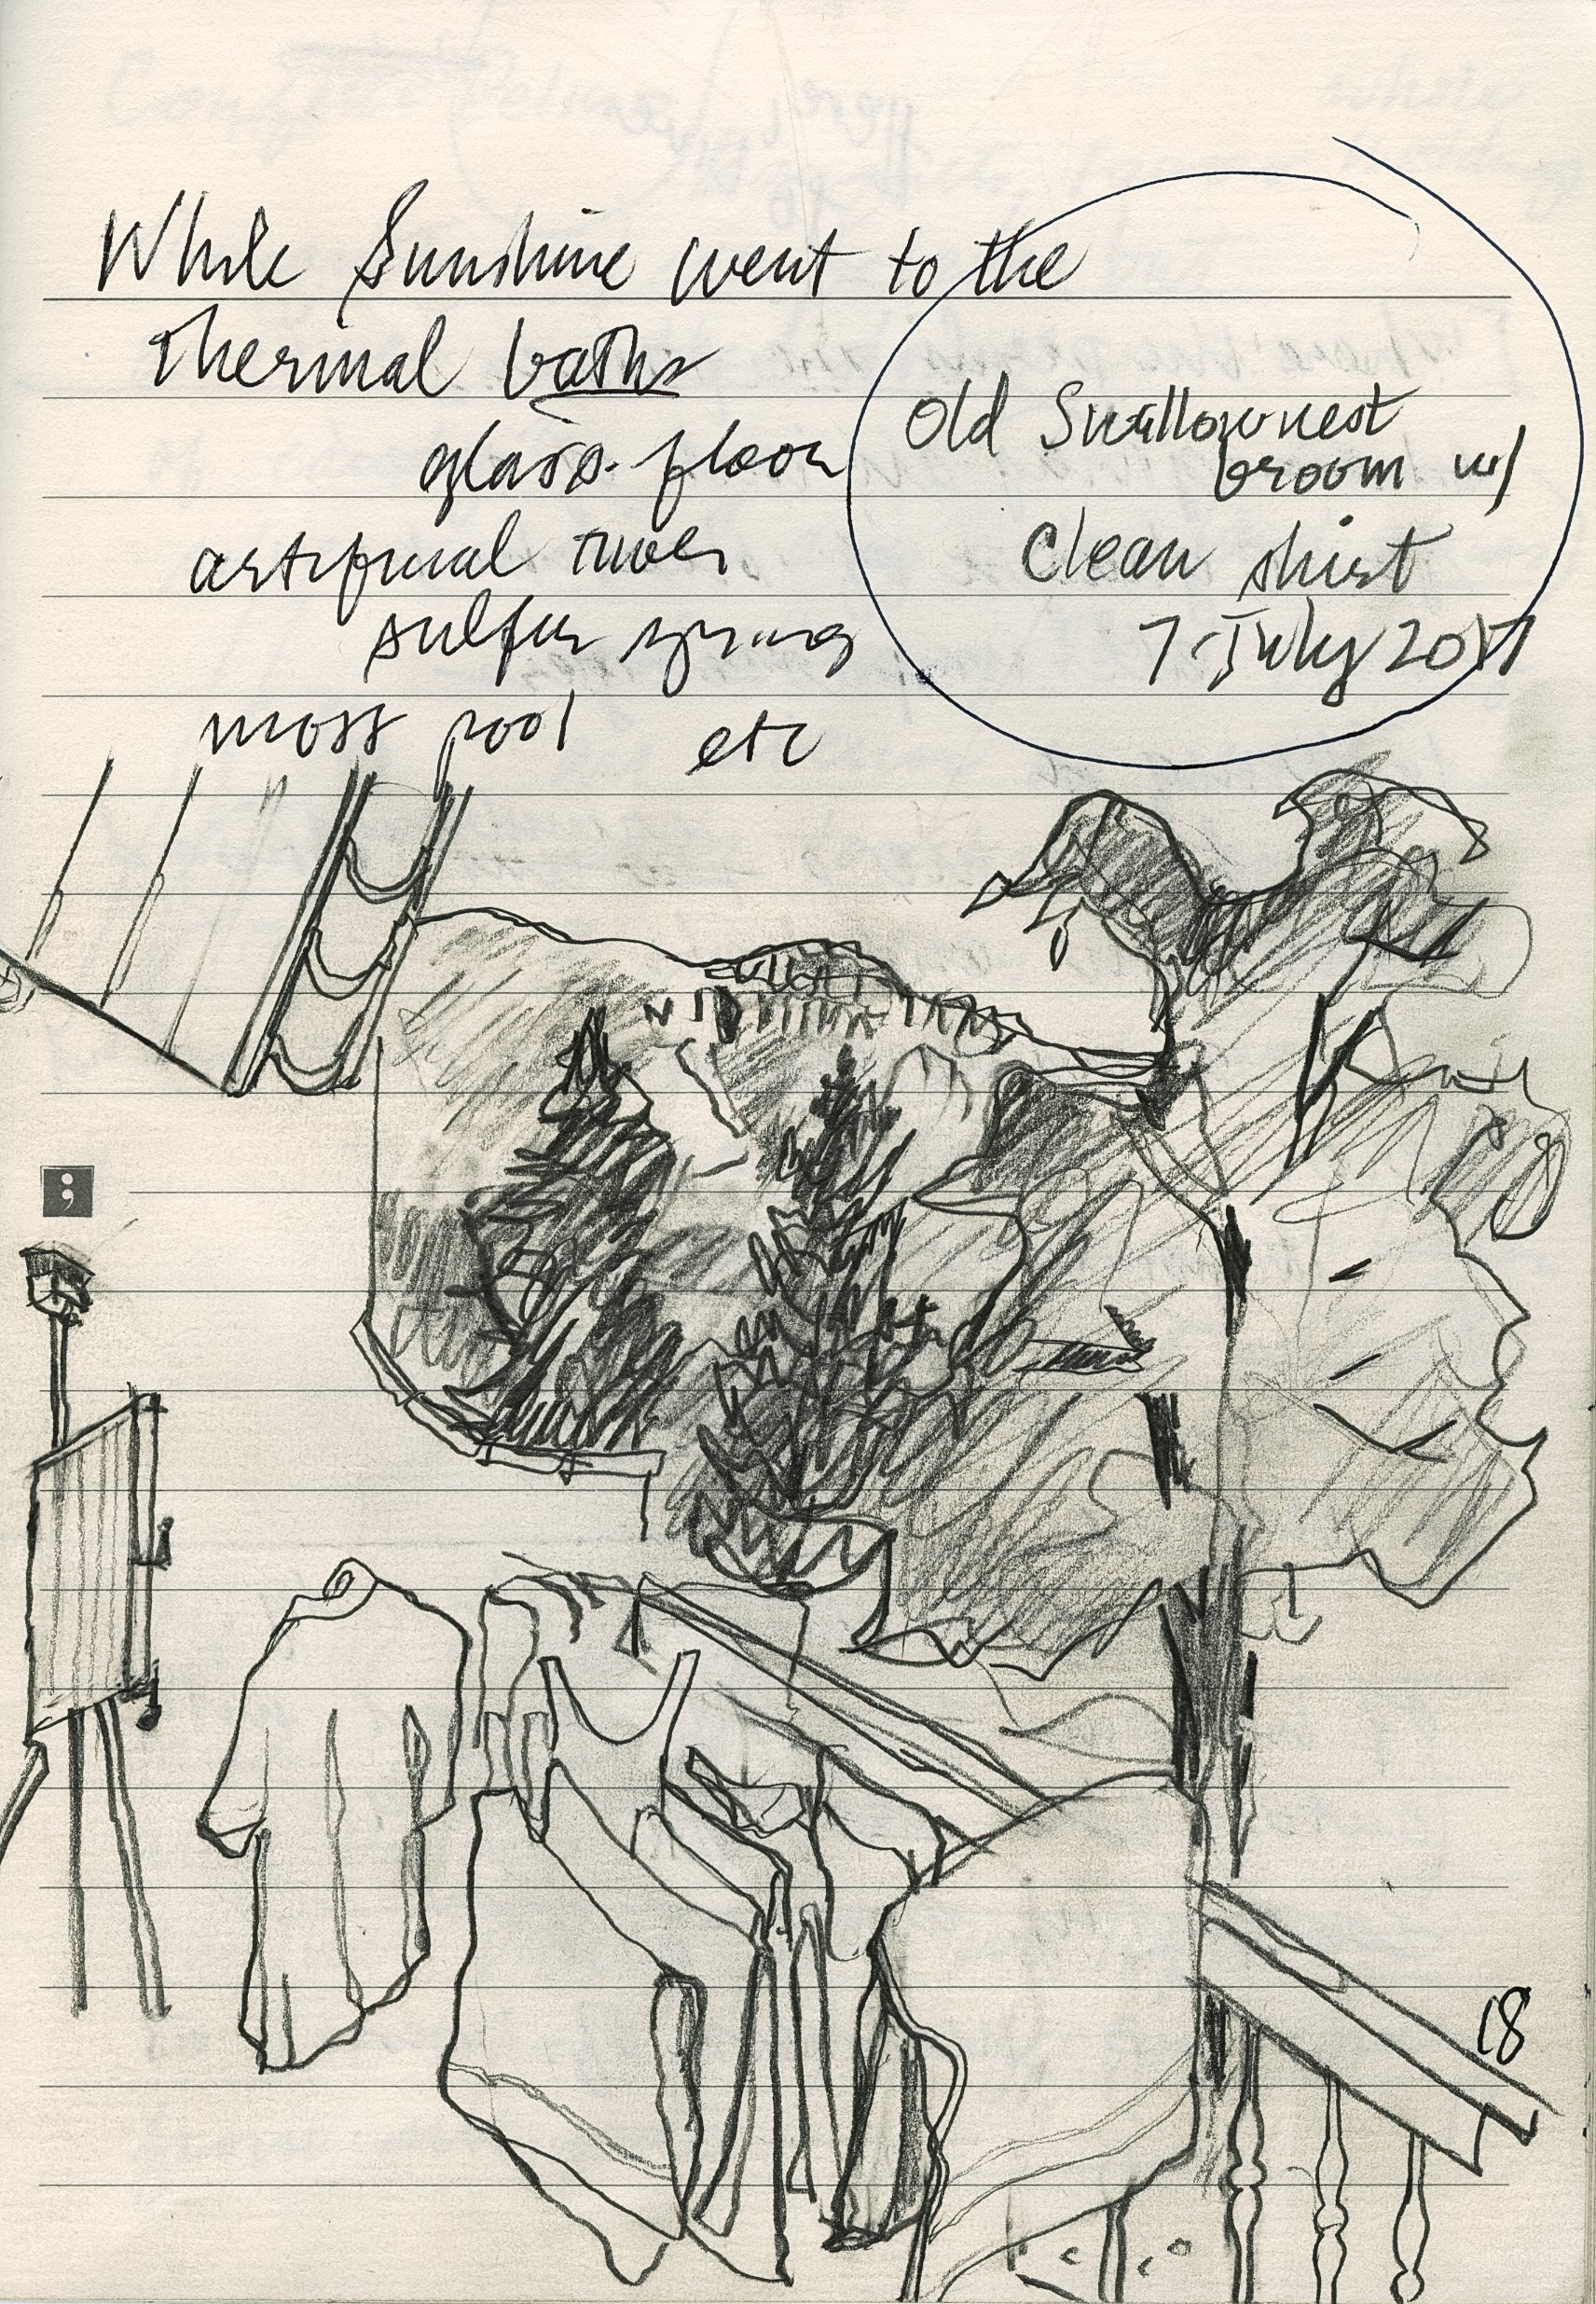 While Sunshine went to the
thermal baths
glass floor
artificial river
sulfur spring
moss pool etc
Old Swallownest
broom w/
Clean shirt
7 July 2017
;
18